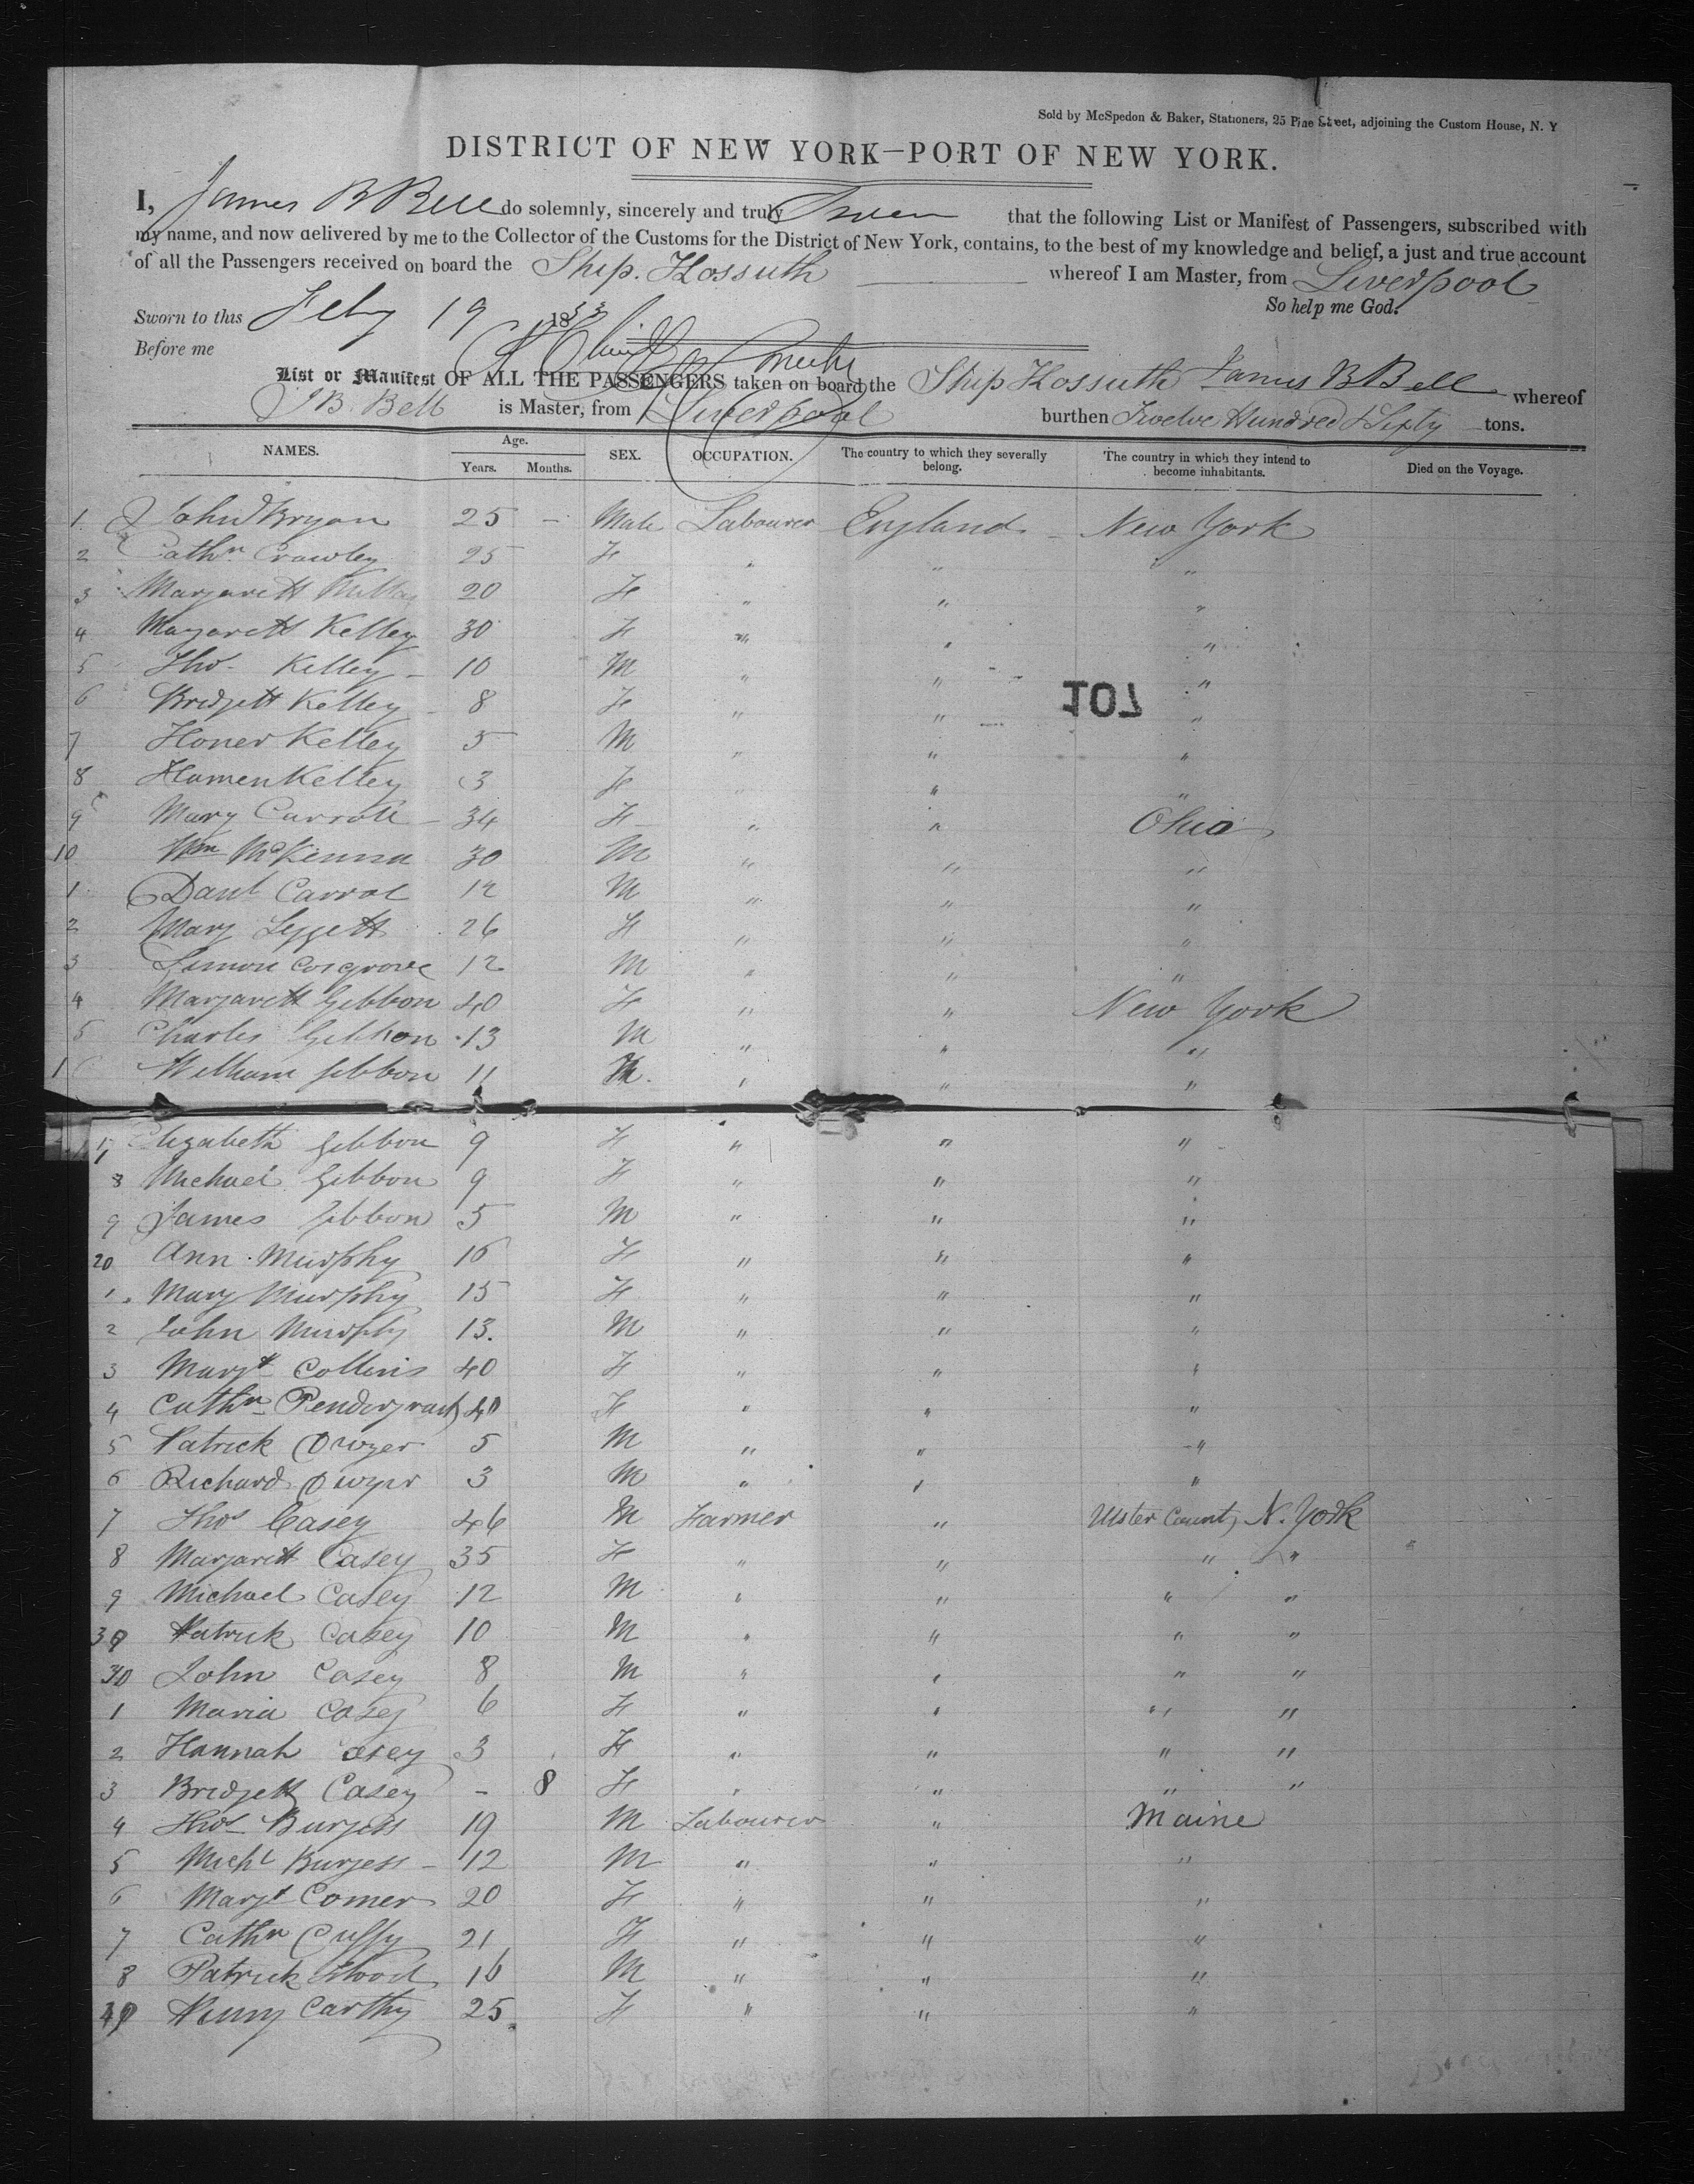 Sold by McSpedon & Baker, Stationers, 25 Pine Street, adjoining the Custom House, N. Y
DISTRICT OF NEW YORK—PORT OF NEW YORK.
I, James B Bell do solemnly, sincerely and truly Swear that the following List or Manifest of Passengers, subscribed with
my name, and now delivered by me to the Collector of the Customs for the District of New York, contains, to the best of my knowledge and belief, a just and true account
of all the Passengers received on board the Ship. Kossuth whereof I am Master, from Liverpool
So help me God.
Sworn to this Feby 19 1853
Before me
List or Manifest OF ALL THE PASSENGERS taken on board the Ship Kossuth James B Bell whereof
J B. Bell is Master, from Liverpool burthen Twelve Hundred & Sixty tons.
NAMES. Age. Years. Months. SEX. OCCUPATION. The country to which they severally belong. The country in which they intend to become inhabitants. Died on the Voyage.
1. John Bryan 25 – Male Labourer England – New York
2 Cathn Crowley 25 F " " "
3 Margarett 20 F " " "
4 Margarett Kelley 30 F " " "
5 Thos Kelley – 10 M " " "
6 Bridgett Kelley 8 F " " "
107
7 Honer Kelley 5 M " " "
8 Kelley 3 F " " "
9 Mary Carroll – 34 F " " Ohio
10 Wm McKenna 30 M " " "
1 Danl Carrol 12 M " " "
2 Mary Leggett 26 F " " "
3 Simon Cosgrove 12 M " " "
4 Margarett Gibbon 40 F " " New York
5 Charles Gibbon 13 M " " "
16 William Gibbon 11 M. " " "
17 Elizabeth Gibbon 9 F " " "
8 Michael Gibbon 9 F " " "
9 James Gibbon 5 M " " "
20 Ann Murphy 16 F " " "
1 Mary Murphy 15 F " " "
2 John Murphy 13. M " " "
3 Margt Collins 40 F " " "
4 Cathn Pendergrast 40 F " " "
5 Patrick Dwyer 5 M " " "
6 Richard Dwyer 3 M " " "
7 Thos Casey 46 M Farmer " Ulster County N. York
8 Margarett Casey 35 F " " " "
9 Michael Casey 12 M " " " "
39 Patrick Casey 10 M " " " "
30 John Casey 8 M " " " "
1 Maria Casey 6 F " " " "
2 Hannah Casey 3 F " " " "
3 Bridgett Casey – 8 F " " " "
4 Thos Burgess 19 M Labourer " Maine
5 Michl Burgess – 12 M " " "
6 Margt Comer 20 F " " "
7 Cathn Cuffy 21 F " " "
8 Patrick Flood 16 M " " "
49 Henry Carthy 25. F " " "